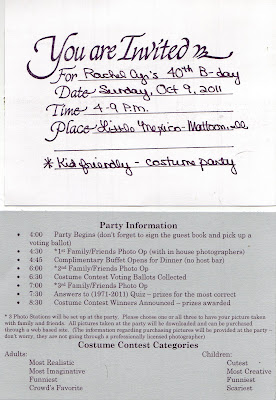 You are Invited
For Rachel Cy's 40th B-day
Date Sunday, Oct 9, 2011
Time 4-9 P.m.
Place Little Mexico-Mattoon, Ill
* Kid friendly - costume party
Party Information
• 4:00 Party Begins (don't forget to sign the guest book and pick up a
voting ballot)
• 4:30 *1st Family/Friends Photo Op (with in house photographers)
• 4:45 Complimentary Buffet Opens for Dinner (no host bar)
• 6:00 *2nd Family/Friends Photo Op
• 6:30 Costume Contest Voting Ballots Collected
• 7:00 *3rd Family/Friends Photo Op
• 7:30 Answers to (1971-2011) Quiz – prizes for the most correct
• 8:30 Costume Contest Winners Announced – prizes awarded
* 3 Photo Stations will be set up at the party. Please choose one or all three to have your picture taken
with family and friends. All pictures taken at the party will be downloaded and can be purchased
through a web based site. (The information regarding purchasing pictures will be provided at the party –
don't worry, they are not going through a professional licensed photographer.)
Costume Contest Categories
Adults: Children:
Most Realistic Cutest
Most Imaginative Most Creative
Funniest Funniest
Crowd's Favorite Scariest